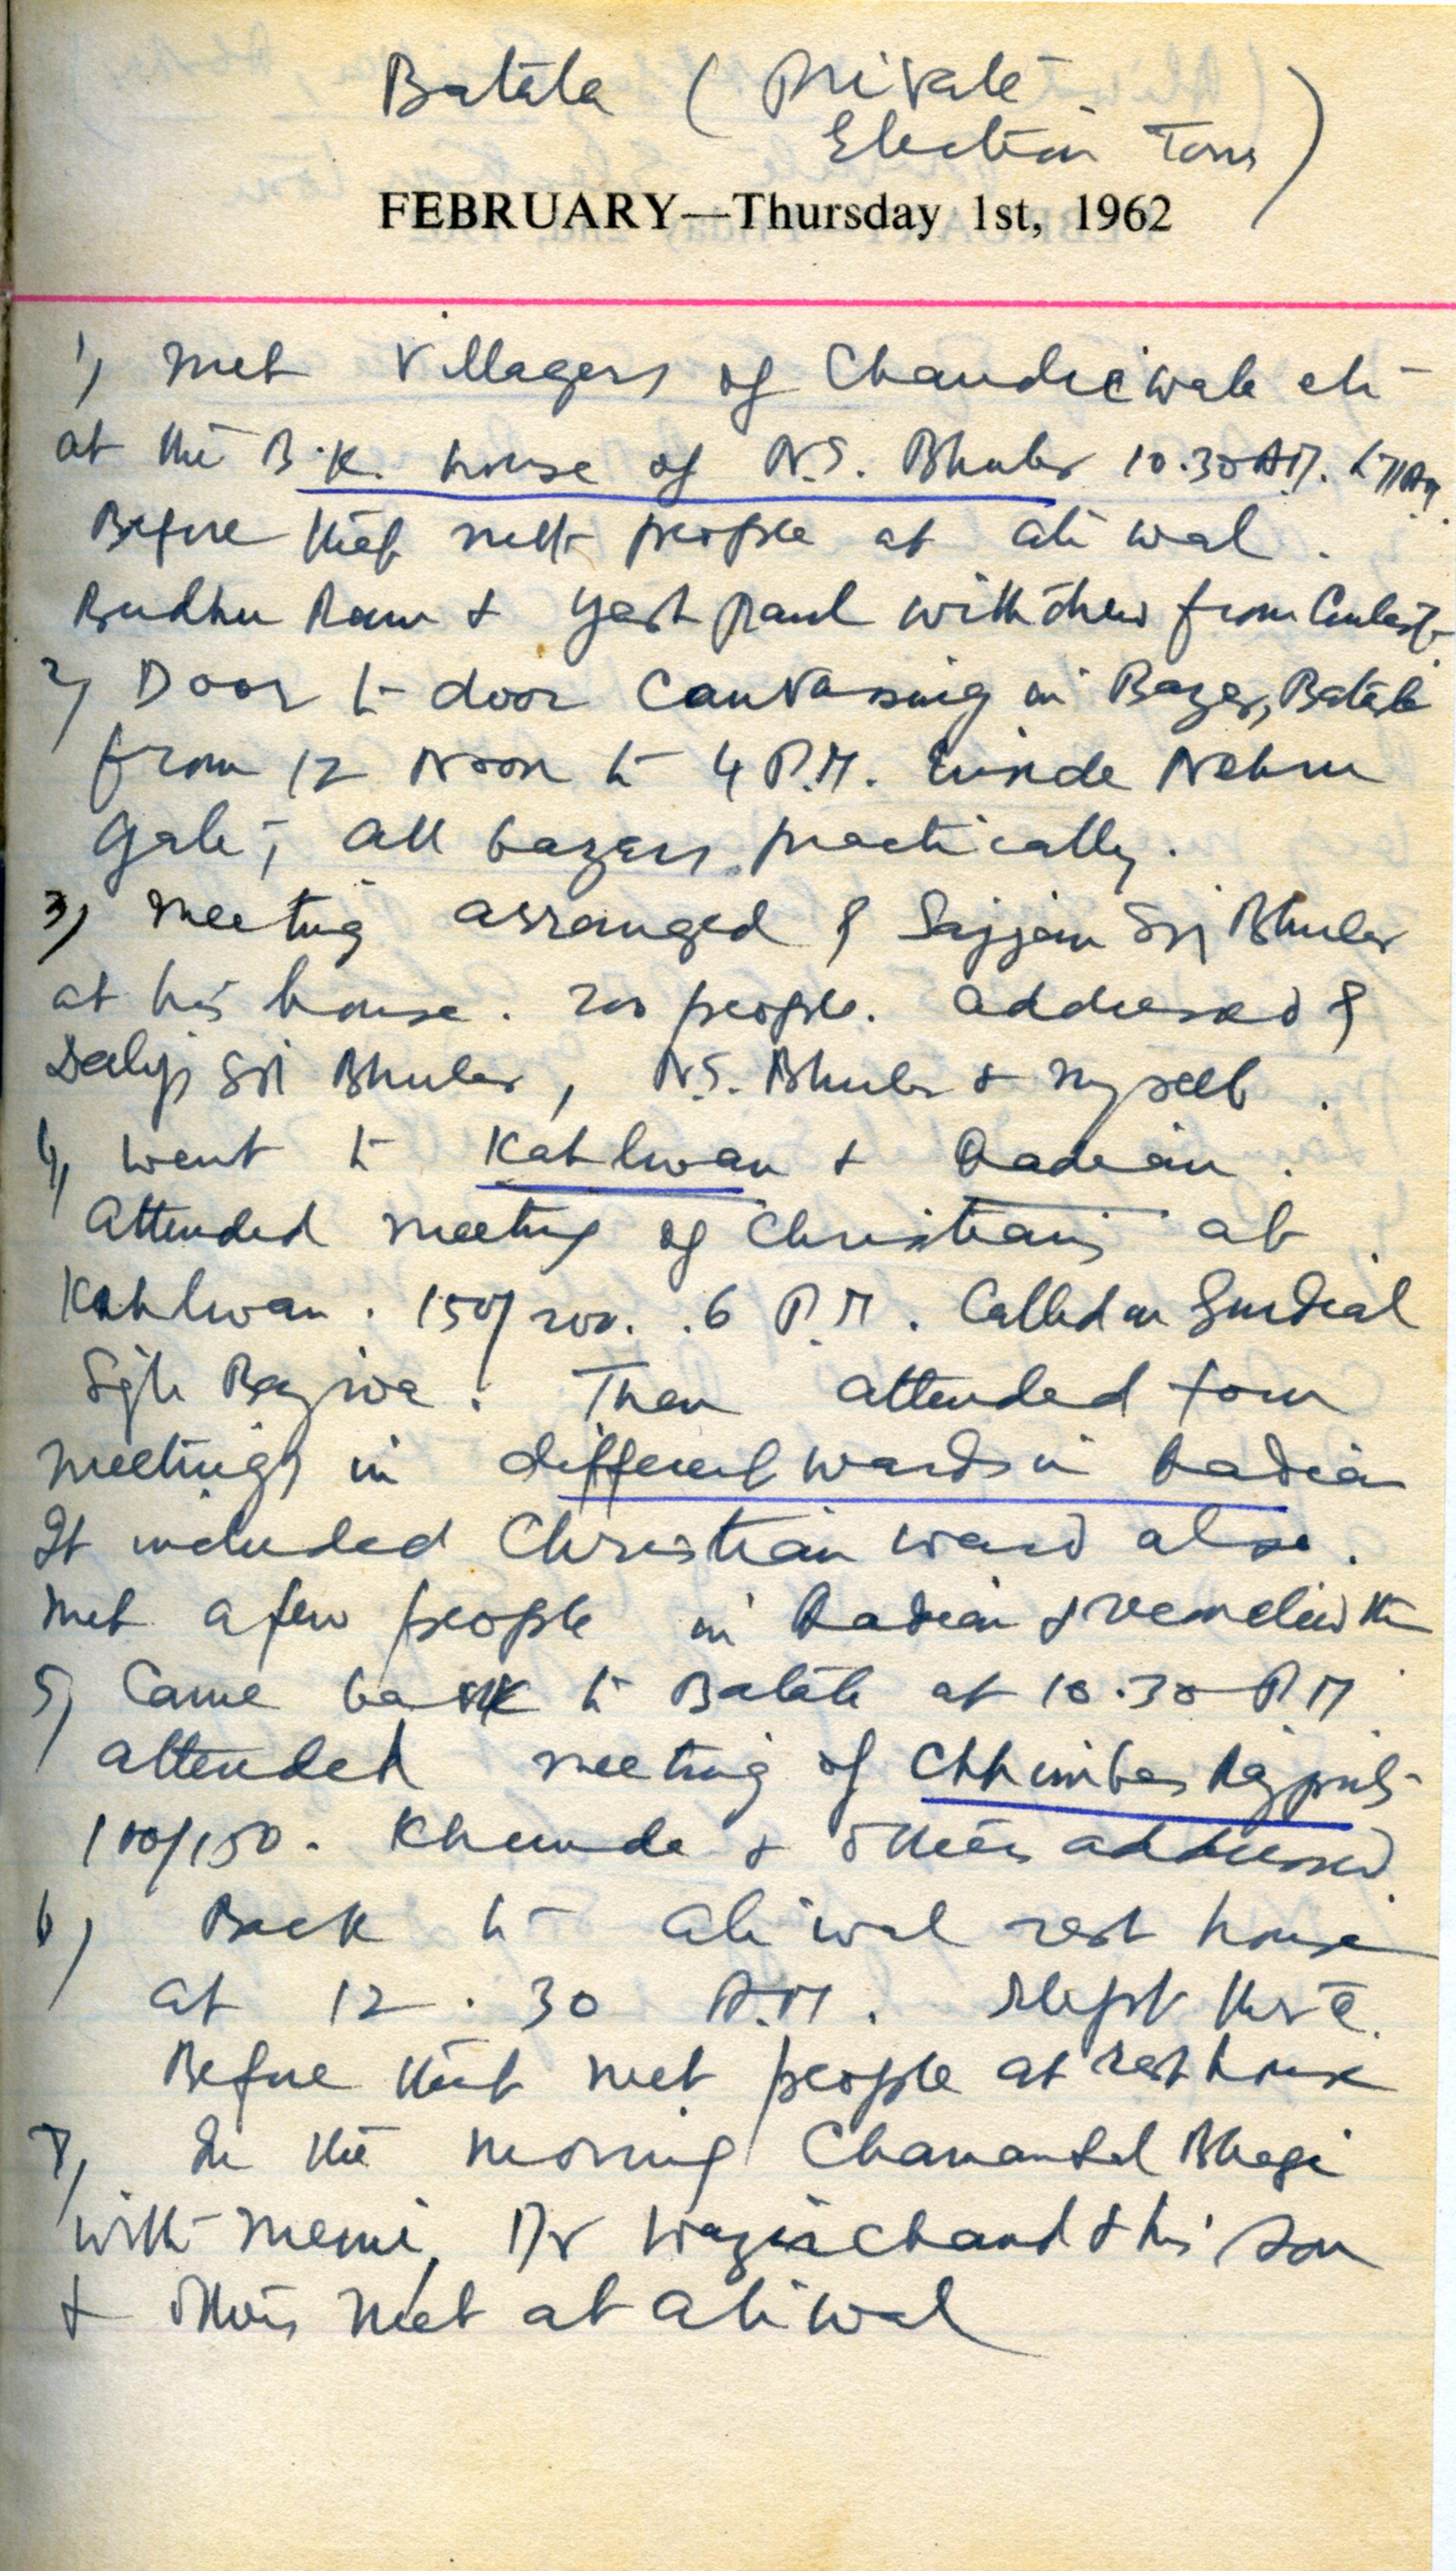 Batala ( Private
Election Tour )
FEBRUARY—Thursday 1st, 1962
1) Met villagers of etc
at the B.K. house of N.S. Bhuler 10.30 A.M. to 11 A.M.
Before that met people at Aliwal.
Budhu Ram & Yash Paul withdrew from Contest.
2) Door to door Canvassing in Bazar, Batala
from 12 Noon to 4 P.M. inside Nehru
Gate, all bazars practically.
3) Meeting arranged by Sajjan Sgh Bhuler
at his house. 200 people. addressed by
Daljit Sgh Bhuler, N.S. Bhuler & myself.
4) Went to Kahlwan & Qadian.
Attended meeting of Christians at
Kahlwan. 150/200. 6 P.M. Called on Gurdial
Sgh Bajwa. Then attended four
meetings in different wards in Qadian
It included Christian ward also.
Met a few people in Qadian &
5) Came back to Batala at 10.30 P.M.
attended meeting of Chhimbas Rajputs
100/150. & others addressed.
6) Back to Aliwal rest house
at 12.30 A.M. Slept there.
Before that met people at rest house
7) In the morning Chamanlal
with Dr Wazirchand & his son
& others met at Aliwal